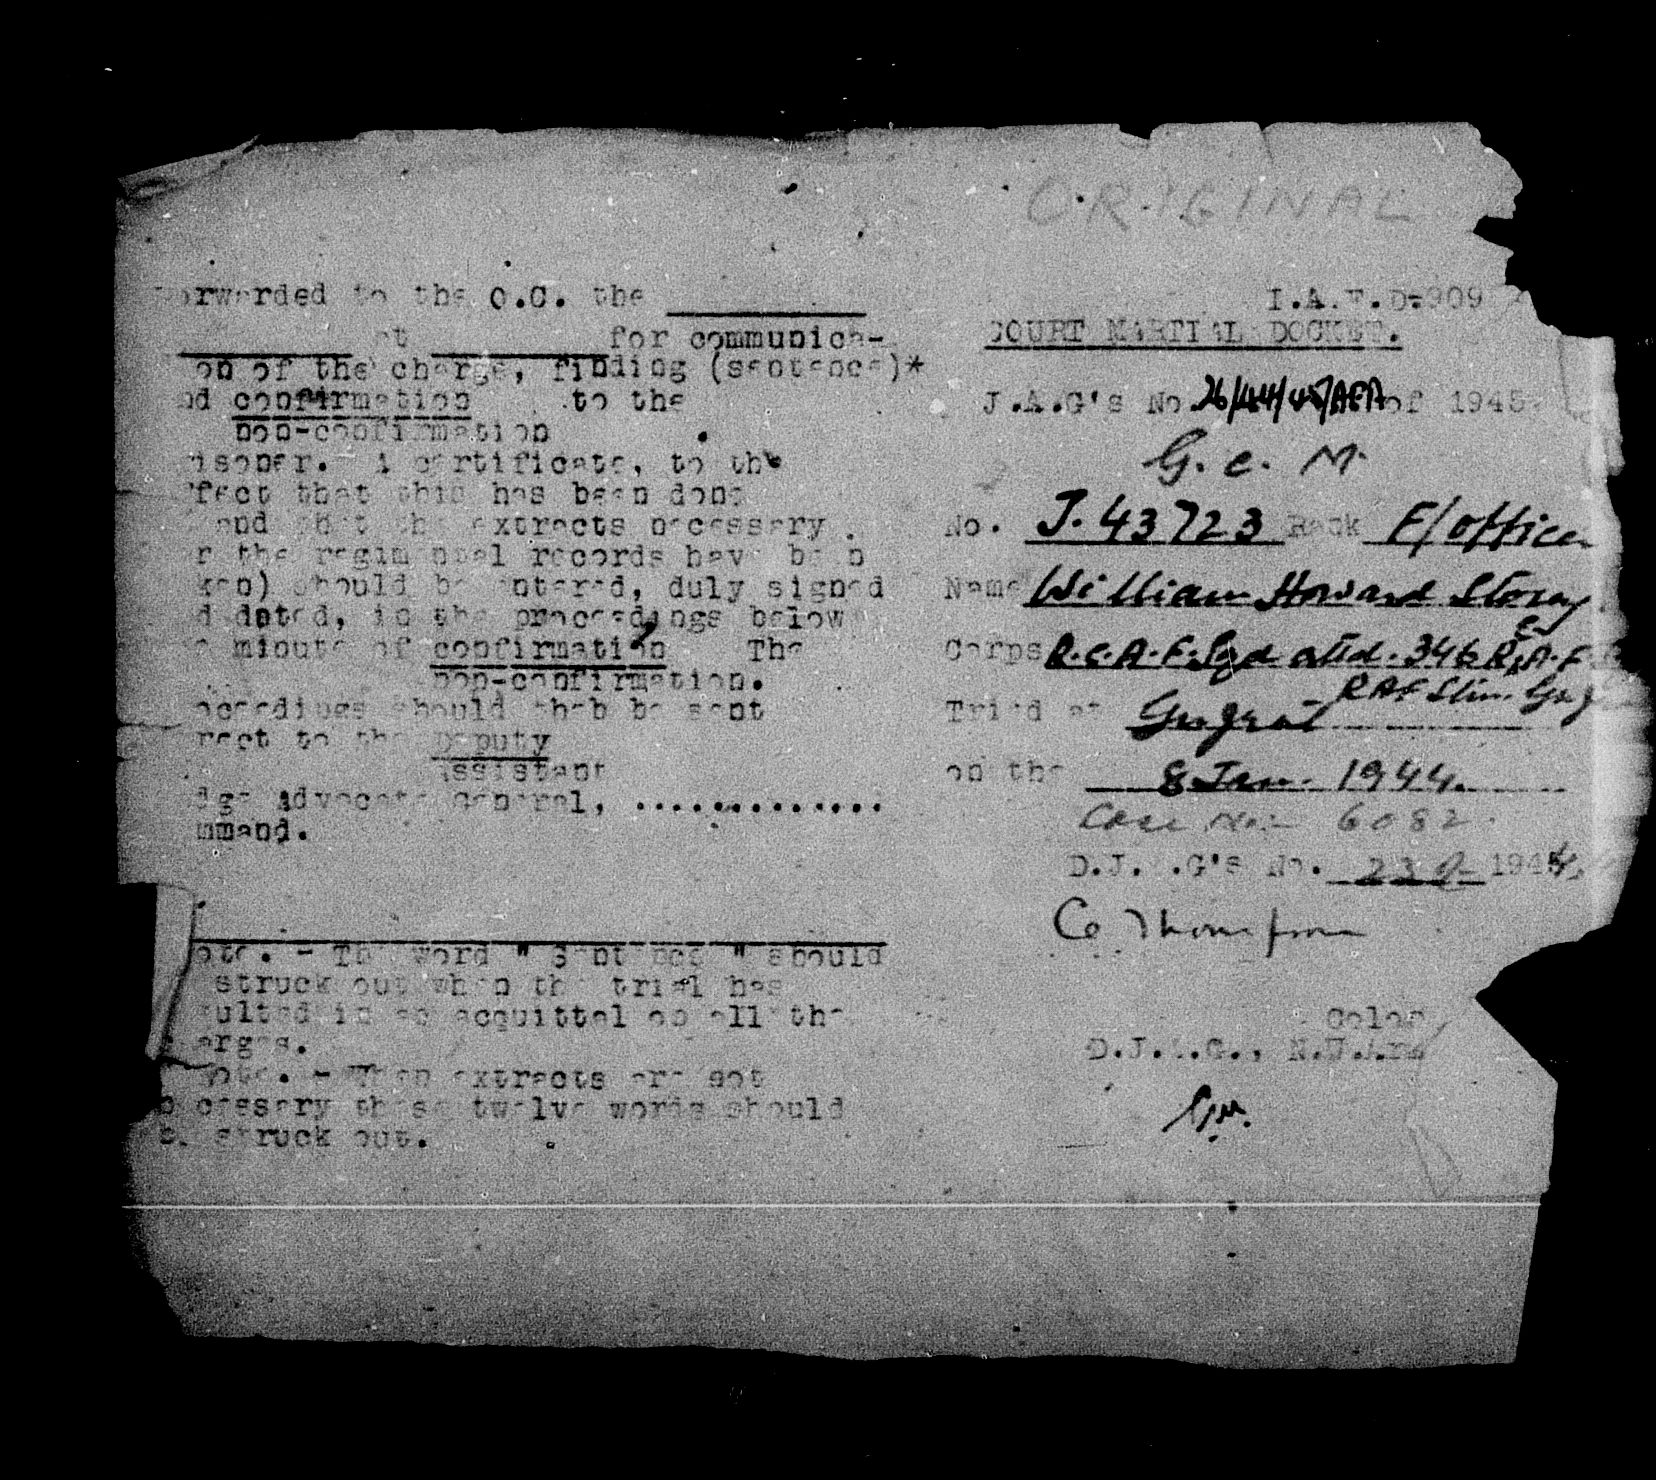 ORIGINAL
orwarded to the O.C. the
at for communica-
on of the charge, finding (sentence)*
nd confirmation to the
non-confirmation
isoner. A certificate, to the
ffect that this has been done
and that the extracts necessary
r the regimental records have been
ken) should be entered, duly signed
d dated, in the proceedings below
minute of confirmation The
non-confirmation.
oceedings should then be sent
rect to the Deputy
Assistant
dge Advocate General, ..............
mmand.
ote. - The word " Sentence " should
struck out when the trial has
sulted in an acquittal on all the
arges.
Note. - When extracts are not
necessary these twelve words should
be struck out.
I.A.F.D-909
COURT MARTIAL DOCKET.
J.A.G's No. 26/44/45/AFA of 1945
G. C. M.
No. J.43723 Rank F/officer
Name William Howard Storey
Corps R.C.A.F. Sqd attd. 346 R.A.F.
RAF Stn.
Tried at Gujrat
on the 8 Jan. 1944.
Case No:- 6082.
D.J.A.G's No. 23 1944
Co Thompson
Colon
D.J.A.G., N.W.Arm